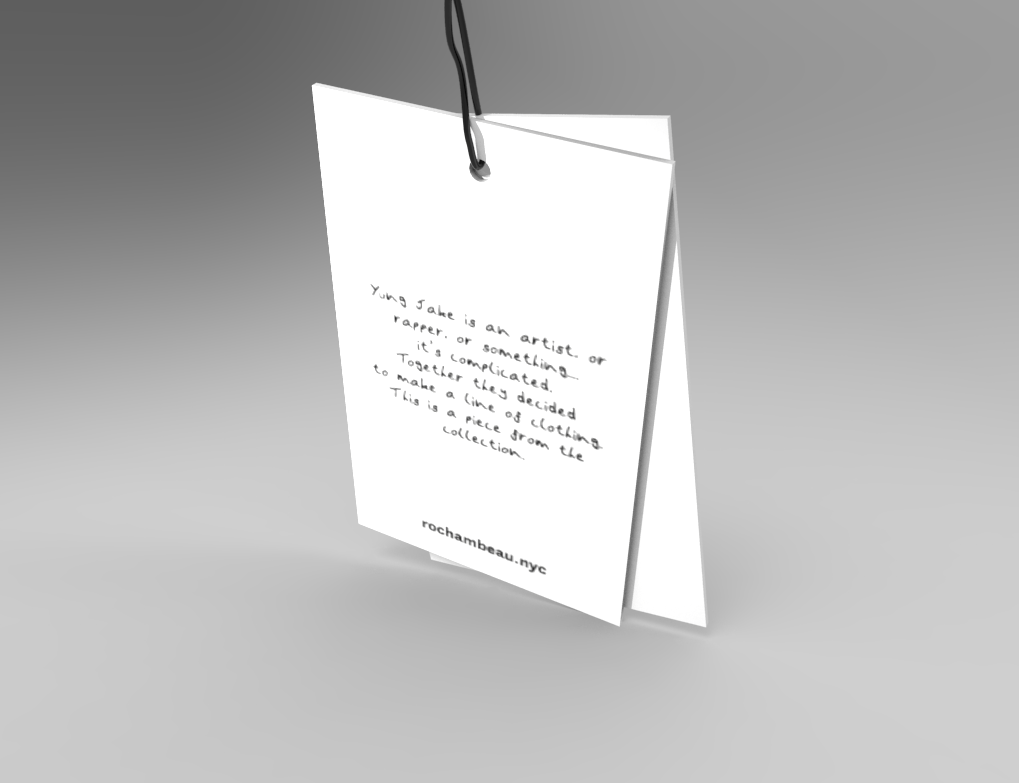 Yung Jake is an artist. or
rapper. or something...
it's complicated.
Together they decided
to make a line of clothing
This is a piece from the
collection.
rochambeau.nyc